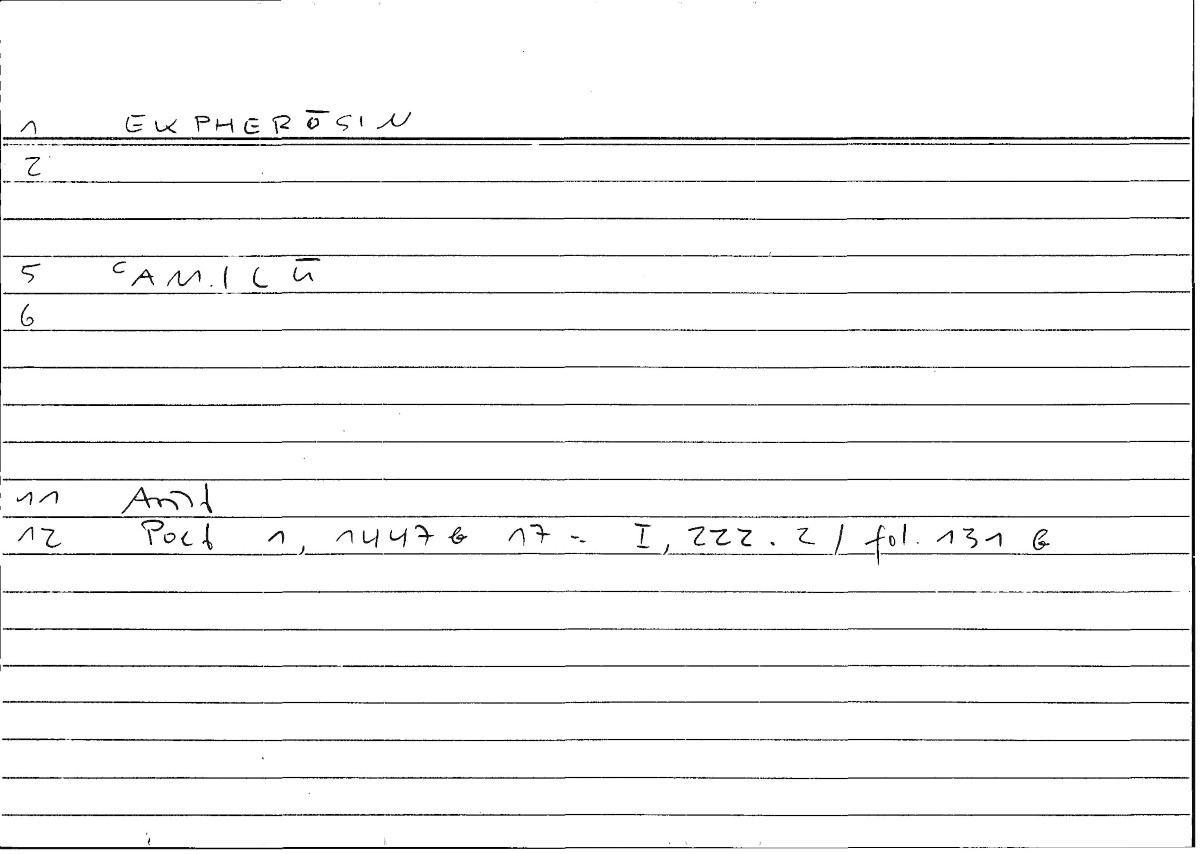 1 EKPHERŌSIN
2
5 ʿAM.ILū
6
11 Arist
12 Poet 1, 1447 b 17 = I, 222. 2 / fol. 131 b